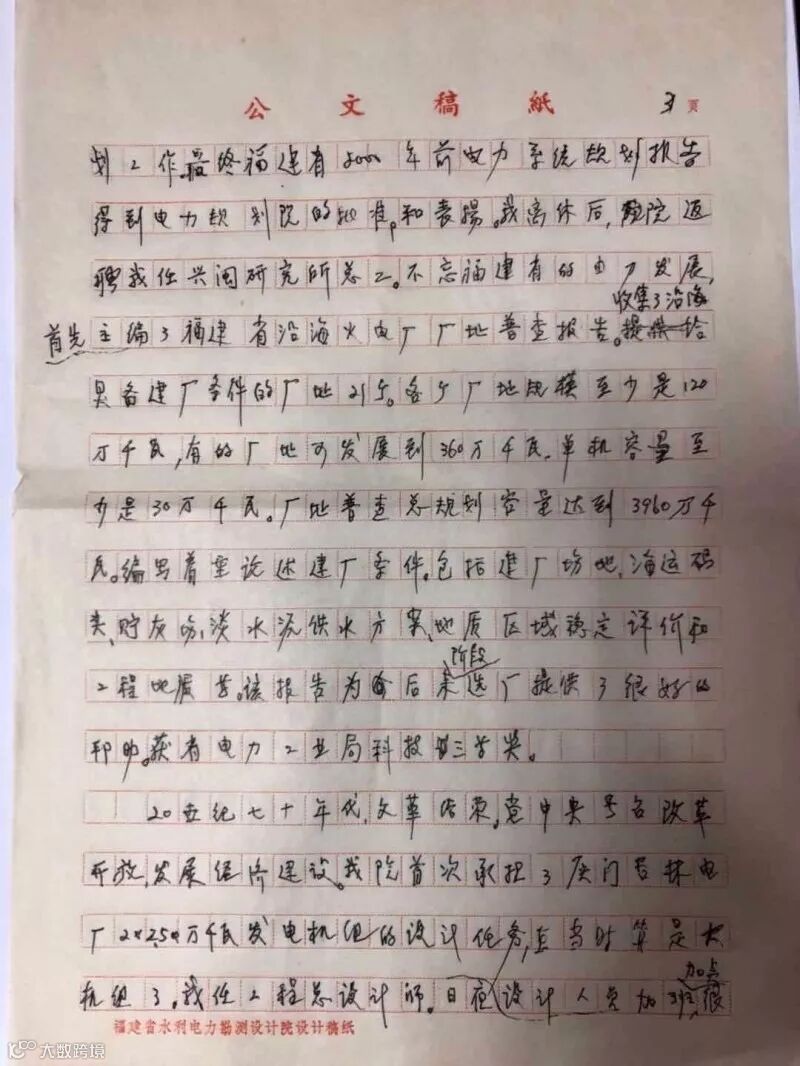 公文稿纸
3页
划工作。最终福建省2000年前电力系统规划报告
得到电力规划院的批准和表扬。我离休后,院返
聘我任兴闽研究所总工。不忘福建省的电力发展,
收集了沿海
首先主编了福建省沿海火电厂厂址普查报告。
具备建厂条件的厂址21个。各个厂址规模至少是120
万千瓦,有的厂址可发展到360万千瓦.单机容量至
少是30万千瓦。厂址普查总规划容量达到3960万千
瓦。编写着重论述建厂条件。包括建厂场地,海运码
头、贮灰场、淡水源供水方案、地质区域稳定评价和
阶段
工程地质等。该报告为今后选厂提供了很好的
帮助。获省电力工业局科技三等奖。
20世纪七十年代,文革结束,党中央号召改革
开放,发展经济建设。我院首次承担了厦门杏林电
厂2×2.5万千瓦发电机组的设计任务,在当时算是大
机组了。我任工程总设计师。日夜设计人员加班,很
加点
福建省水利电力勘测设计院设计稿纸
大数跨境